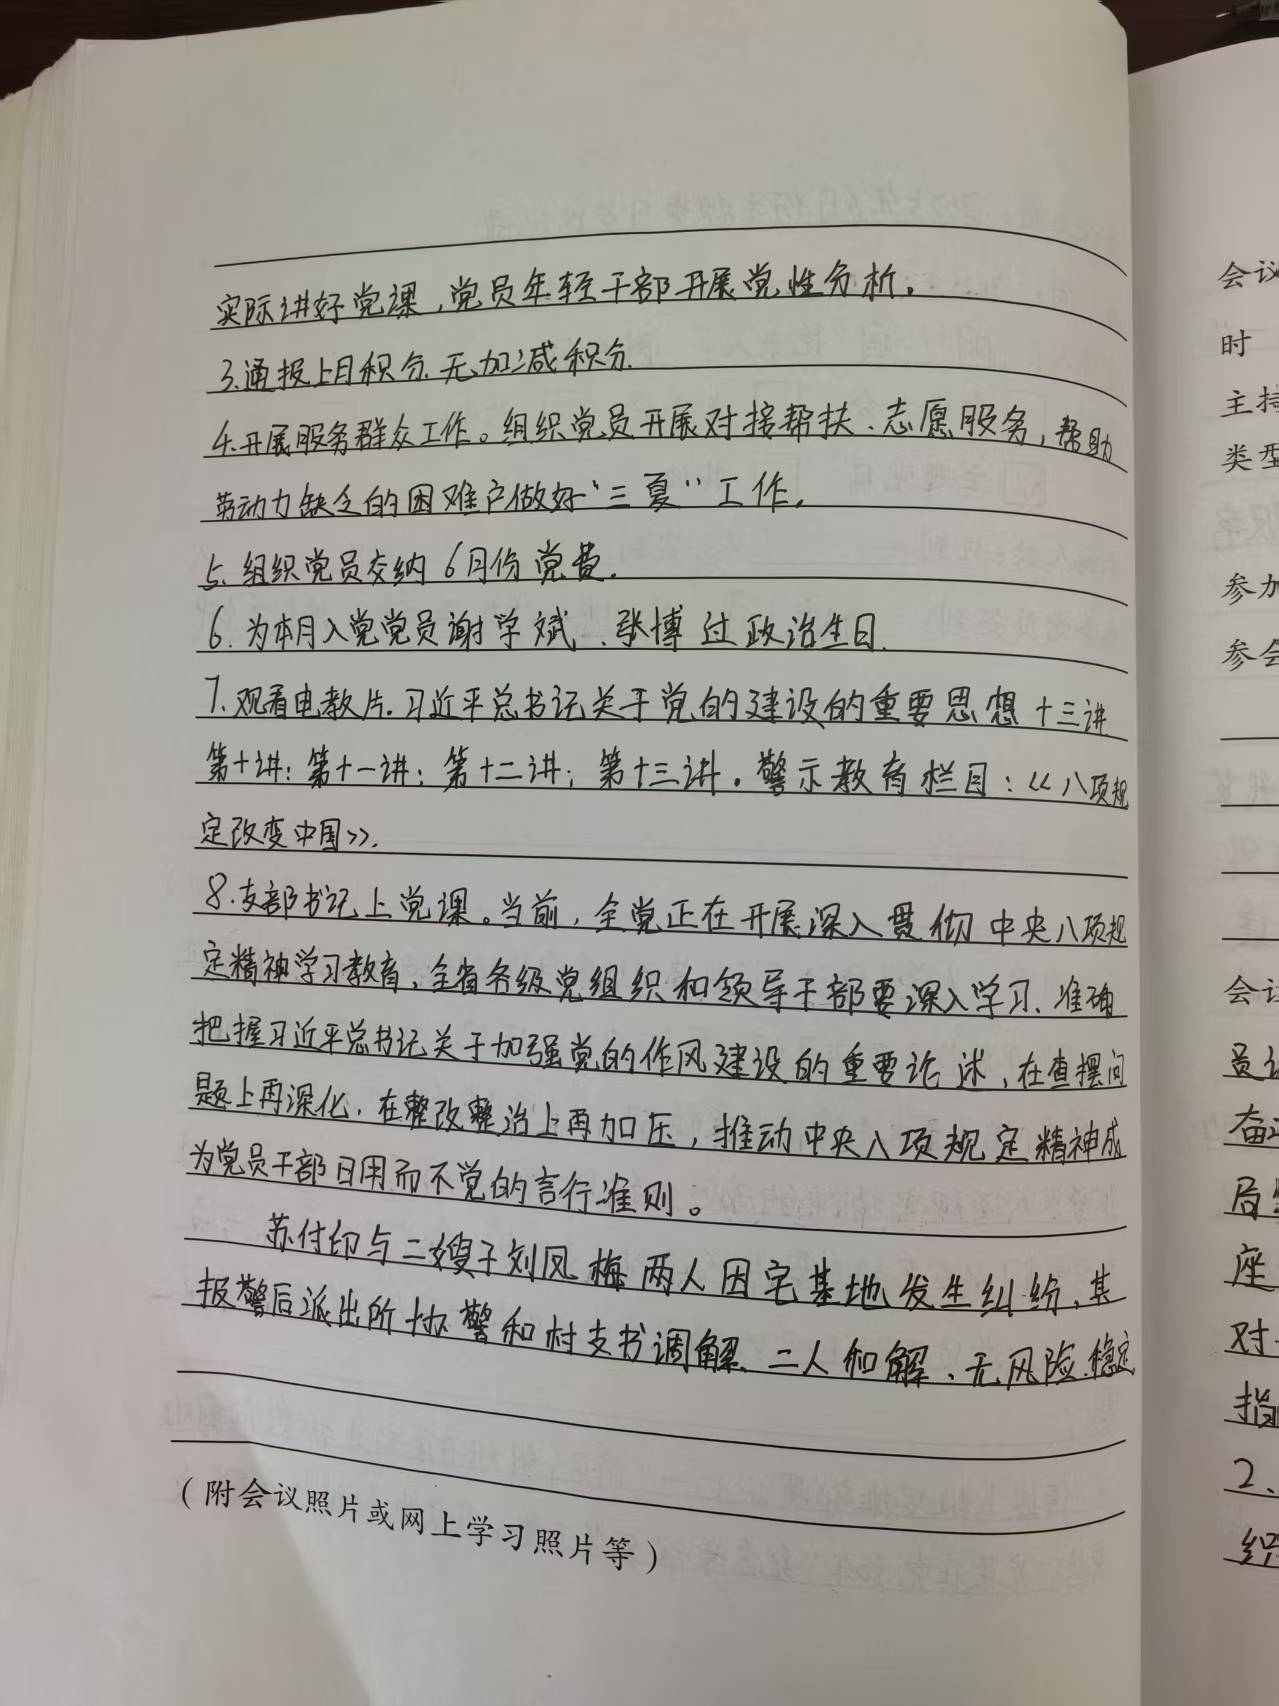 实际讲好党课，党员年轻干部开展党性分析。
3.通报上月积分.无加减积分.
4.开展服务群众工作。组织党员开展对接帮扶、志愿服务，帮助
劳动力缺乏的困难户做好“三夏”工作。
5.组织党员交纳6月份党费.
6.为本月入党党员谢学斌、张博过政治生日.
7.观看电教片.习近平总书记关于党的建设的重要思想十三讲
第十讲；第十一讲；第十二讲；第十三讲。警示教育栏目：《八项规
定改变中国》.
8.支部书记上党课。当前，全党正在开展深入贯彻中央八项规
定精神学习教育，全省各级党组织和领导干部要深入学习、准确
把握习近平总书记关于加强党的作风建设的重要论述，在查摆问
题上再深化，在整改整治上再加压，推动中央八项规定精神成
为党员干部日用而不觉的言行准则。
苏付印与二嫂子刘凤梅两人因宅基地发生纠纷，其
报警后派出所协警和村支书调解、二人和解、无风险.稳定
（附会议照片或网上学习照片等）
会议
时
主持
类型
参加
参会
会议
座
对
2、